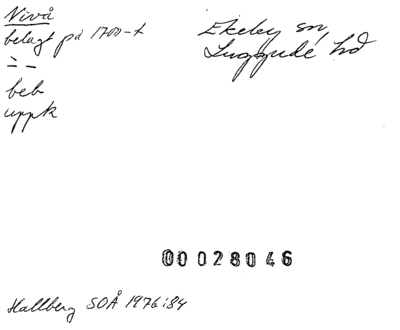 Nivå
belagt på 1700-t
∸ –
beb
uppk
Ekeby sn,
Luggude hd
00028046
Hallberg SOÅ 1976:84